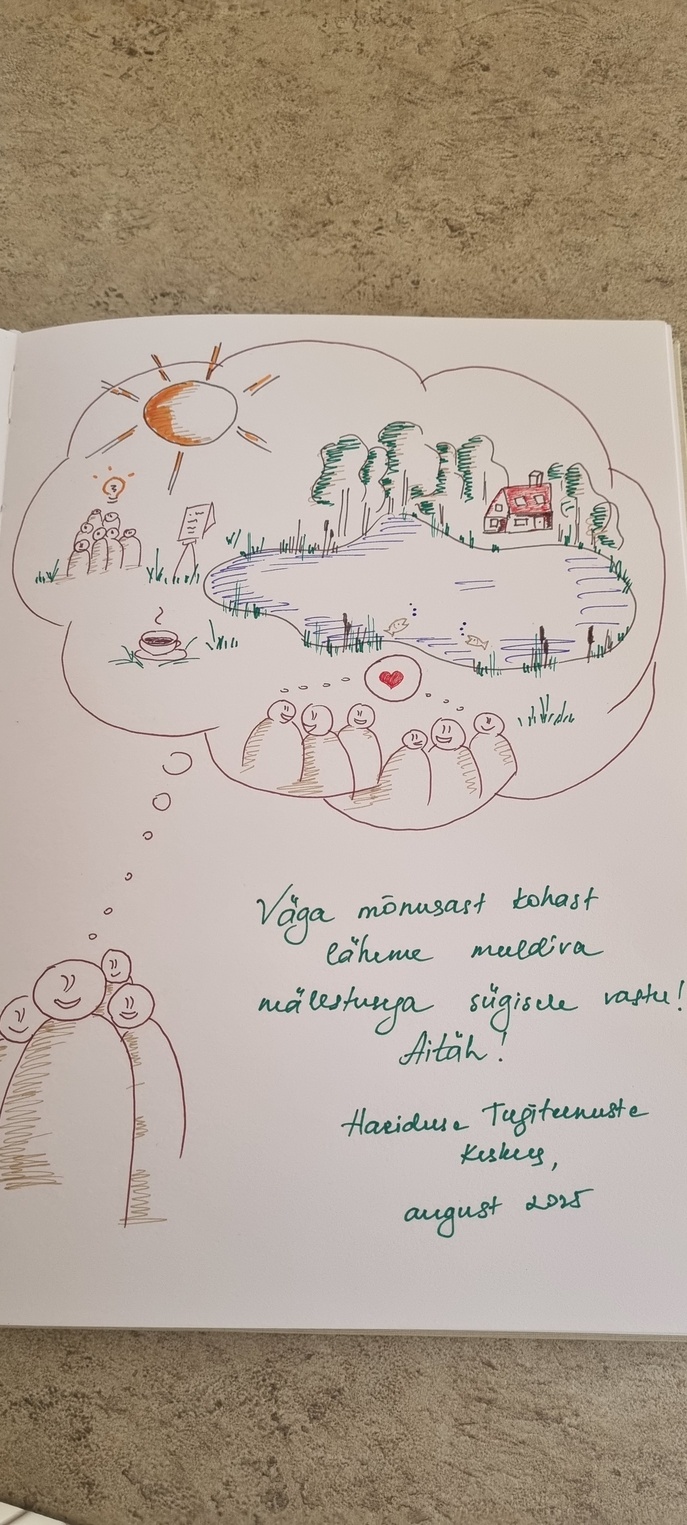 Väga mõnusast kohast
läheme muldiva
mälestusega sügisele vastu!
Aitäh!
Hariduse Tugiteenuste
Keskus,
august 2025